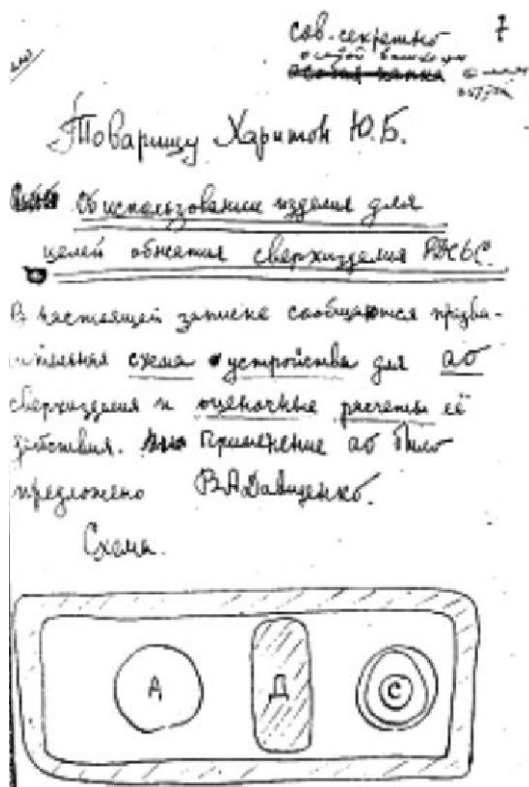 сов. секретно 7
особой важности
особая папка
Товарищу Харитон Ю.Б.
Об использовании изделия для
целей обжатия сверхизделия РДС6С.
В настоящей записке сообщаются предва-
рительная схема устройства для АО
сверхизделия и оценочные расчеты её
действия. Применение АО было
предложено В.А.Давиденко.
Схема.
А Д С